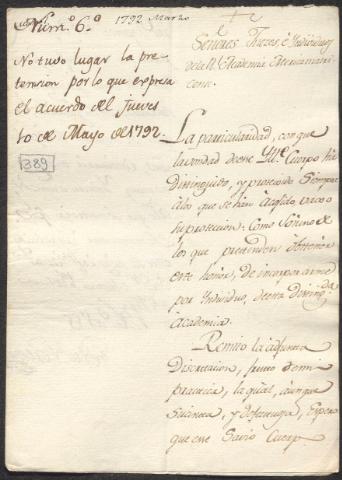 Num.º 6.º
1792 Marzo
No tuvo lugar la pre-
tension por lo que expresa
el acuerdo del Jueves
10 de Mayo de 1792.
389
Señores Juezes, è Individuos
de la Rl. Academia Matritense
La particularidad, con que
la vondad de ese Ill.e Cuerpo ha
distinguido, y protexido siempre
à los que se han acojido
su proteccion: Como
los que pretenden obtener
este honor, de incorporarme
por Individuo, de esta disting.da
Academia.
Remito la adjunta
Disertacion, fruto de mi
, la qual, àunque
sucinta, y , espero
que ese Savio Cuerpo